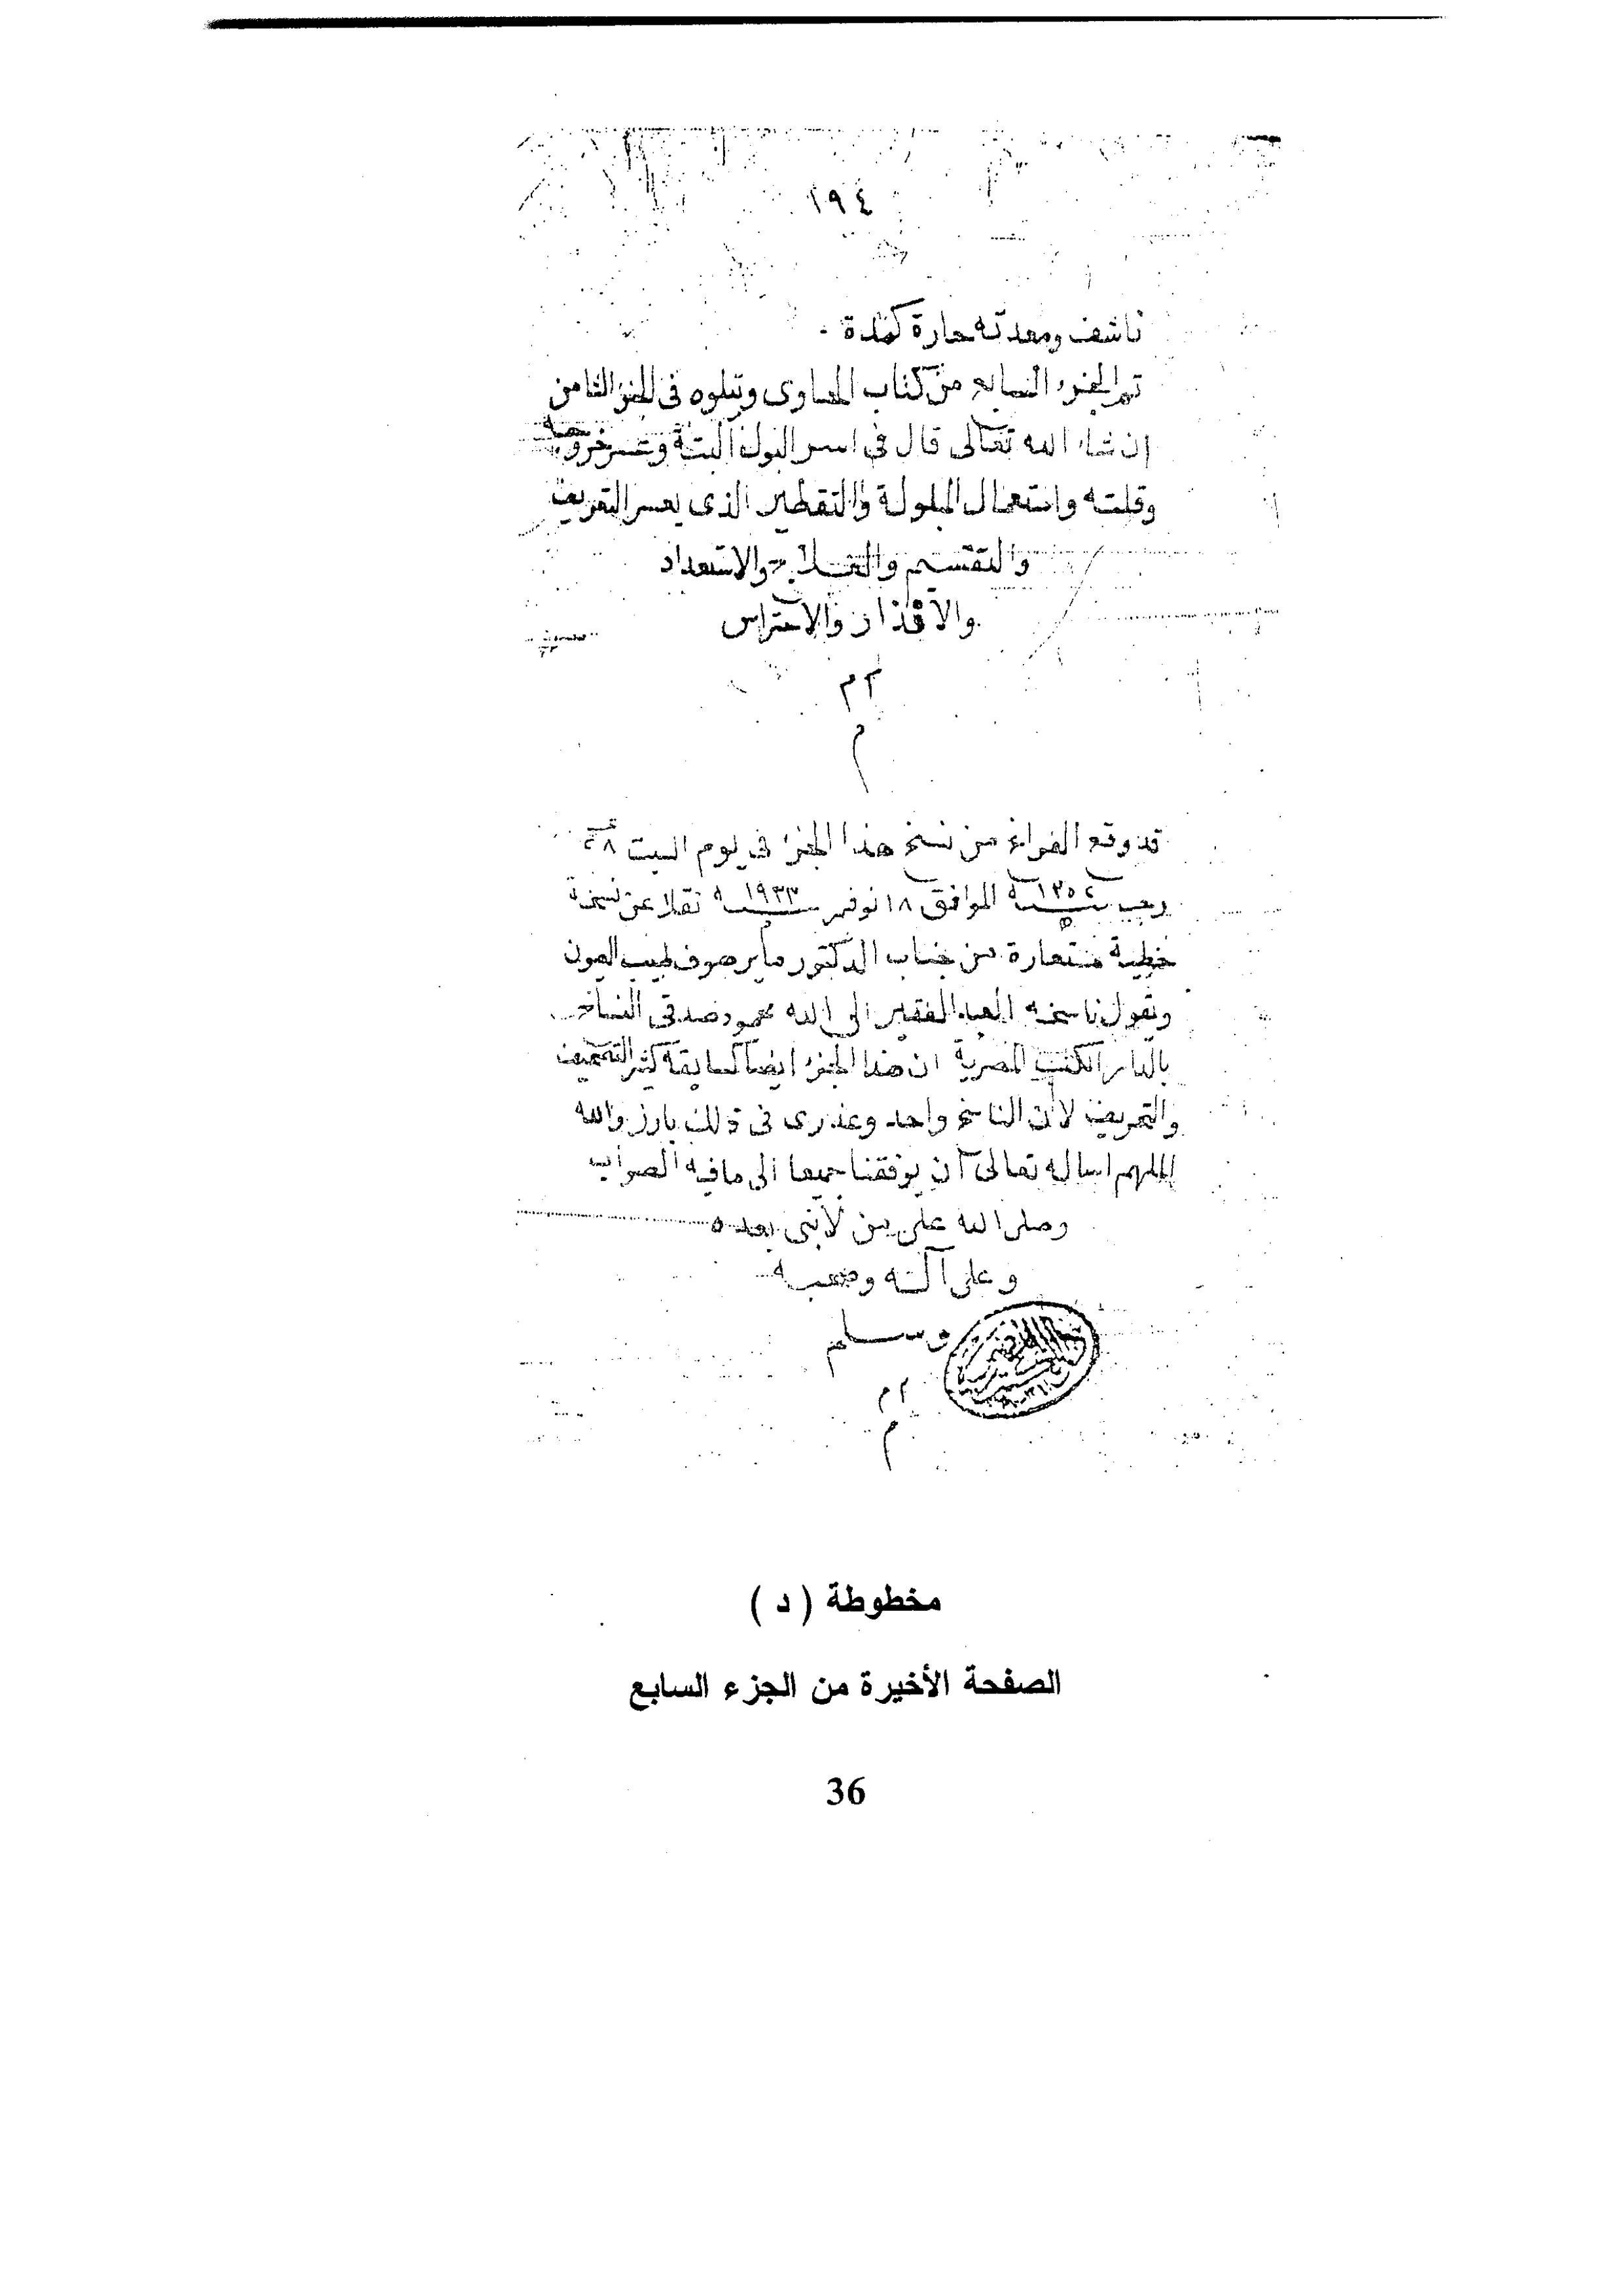 ١٩٤
ناشف ومعدته حارة كمدة .
تم الجزء السابع من كتاب الحاوى ويتلوه فى الجزء الثامن
ان شاء الله تعالى قال فى اسر البول البتة وعسر خروجه
وقلته واستعمال المبلولة والتقطير الذى يعسر التعريف
والتقسيم والعلاج والاستعداد
والانذار والاحتراس
م م
م
قد وقع الفراغ من نسخ هذا الجزء فى يوم السبت
رجب سنة ١٣٥٢ الموافق ١٨ نوفمبر سنة ١٩٣٣ نقلا عن نسخة
خطية مستعارة من جناب الدكتور مايرهوف طبيب العيون
ويقول ناسخه العبد الفقير الى الله محمود صدقى النساخ
بالدار الكتب المصرية ان هذا الجزء ايضا كسابقه كثير التصحيف
والتحريف لأن الناسخ واحد وعذرى فى ذلك بارز والله
الملهم اساله تعالى أن يوفقنا جميعا الى ما فيه الصواب
وصلى الله على من لا نبى بعده
وعلى آله وصحبه
وسلم
م م
م
مخطوطة ( د )
الصفحة الأخيرة من الجزء السابع
36